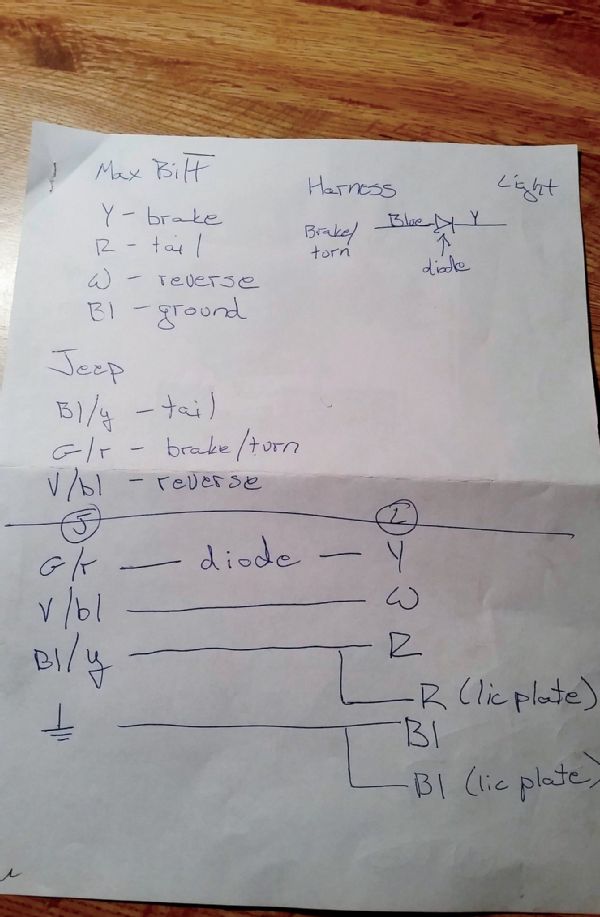 Max Bilt
Y - brake
R - tail
W - reverse
Bl - ground
Harness
Light
Brake/
turn
Blue
Y
diode
Jeep
Bl/y - tail
G/r - brake/turn
V/bl - reverse
J
L
G/r — diode — Y
V/bl — W
Bl/y — R
R (lic plate)
Bl
Bl (lic plate)